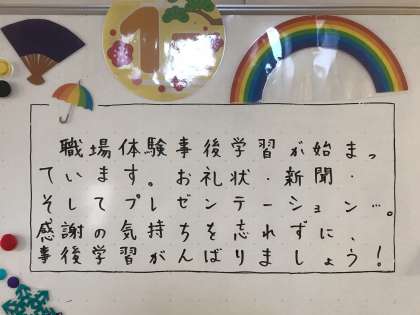 1
職場体験事後学習が始まっ
ています。お礼状・新聞・
そしてプレゼンテーション…。
感謝の気持ちを忘れずに、
事後学習がんばりましょう!